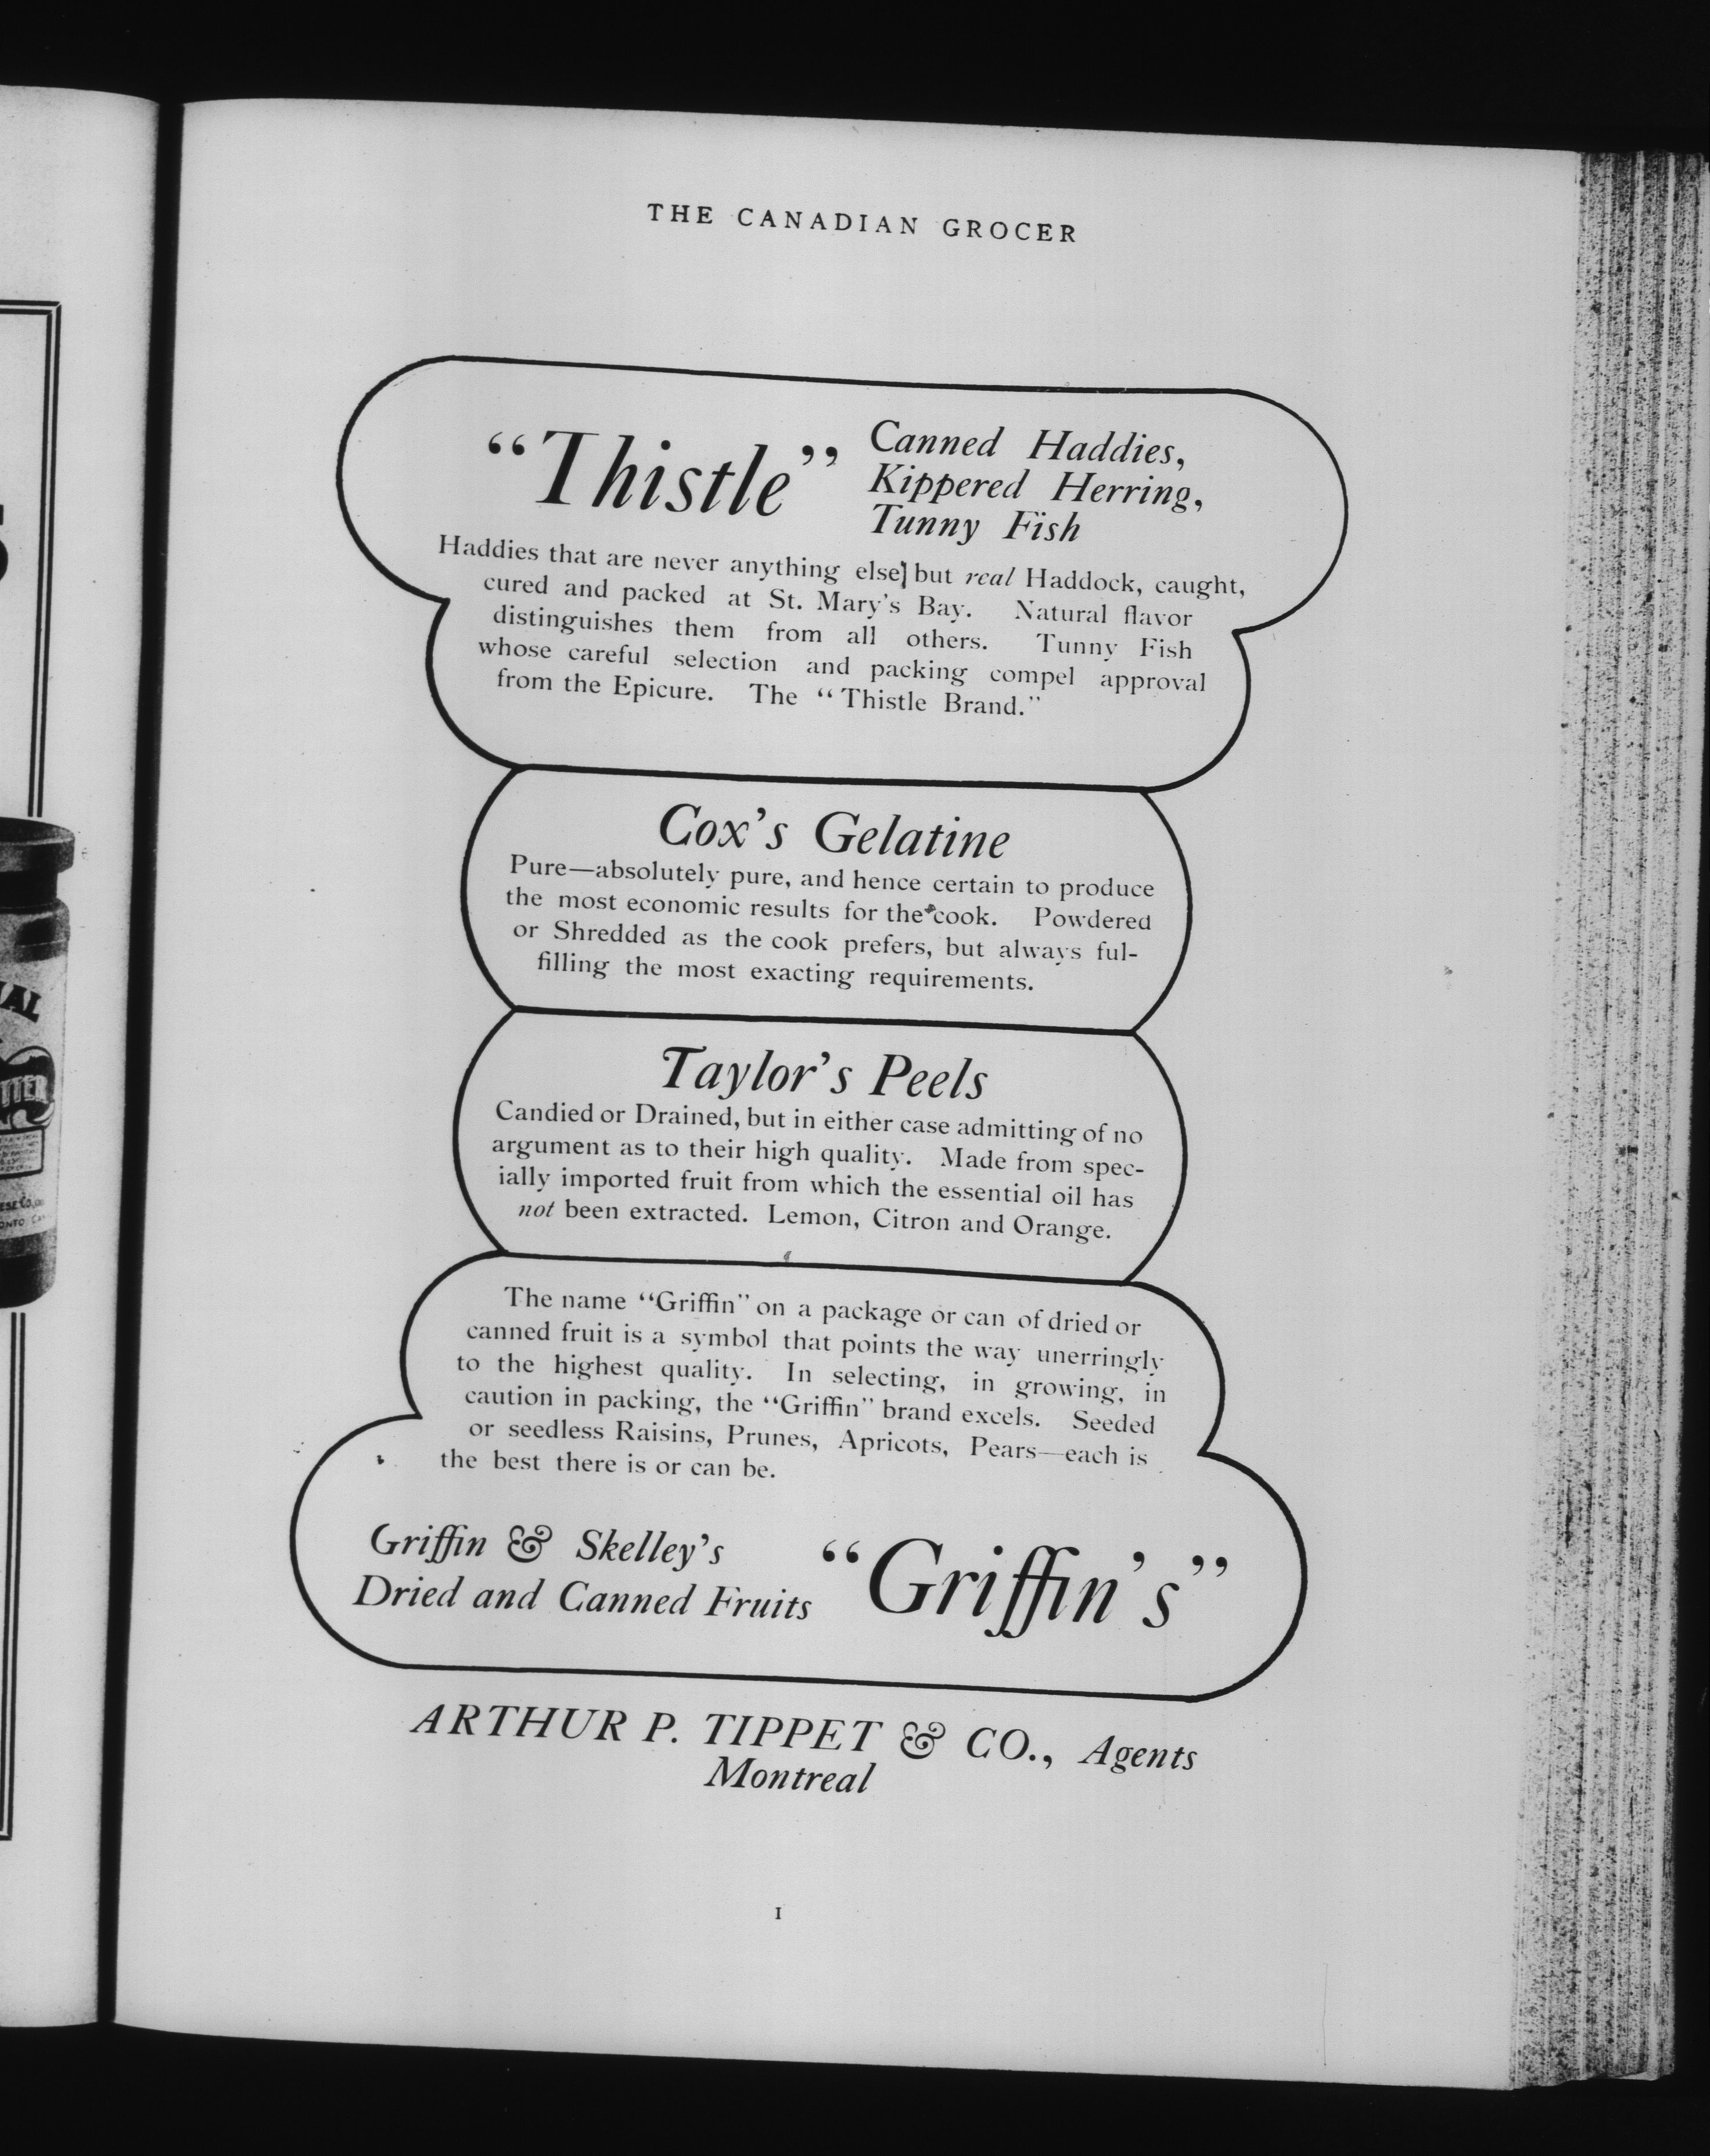 THE CANADIAN GROCER
“Thistle”
Canned Haddies,
Kippered Herring,
Tunny Fish
Haddies that are never anything else but real Haddock, caught,
cured and packed at St. Mary's Bay. Natural flavor
distinguishes them from all others. Tunny Fish
whose careful selection and packing compel approval
from the Epicure. The “Thistle Brand.”
Cox's Gelatine
Pure—absolutely pure, and hence certain to produce
the most economic results for the cook. Powdered
or Shredded as the cook prefers, but always ful-
filling the most exacting requirements.
Taylor's Peels
Candied or Drained, but in either case admitting of no
argument as to their high quality. Made from spec-
ially imported fruit from which the essential oil has
not been extracted. Lemon, Citron and Orange.
The name “Griffin” on a package or can of dried or
canned fruit is a symbol that points the way unerringly
to the highest quality. In selecting, in growing, in
caution in packing, the “Griffin” brand excels. Seeded
or seedless Raisins, Prunes, Apricots, Pears—each is
the best there is or can be.
Griffin & Skelley's
Dried and Canned Fruits
“Griffin's”
ARTHUR P. TIPPET & CO., Agents
Montreal
I